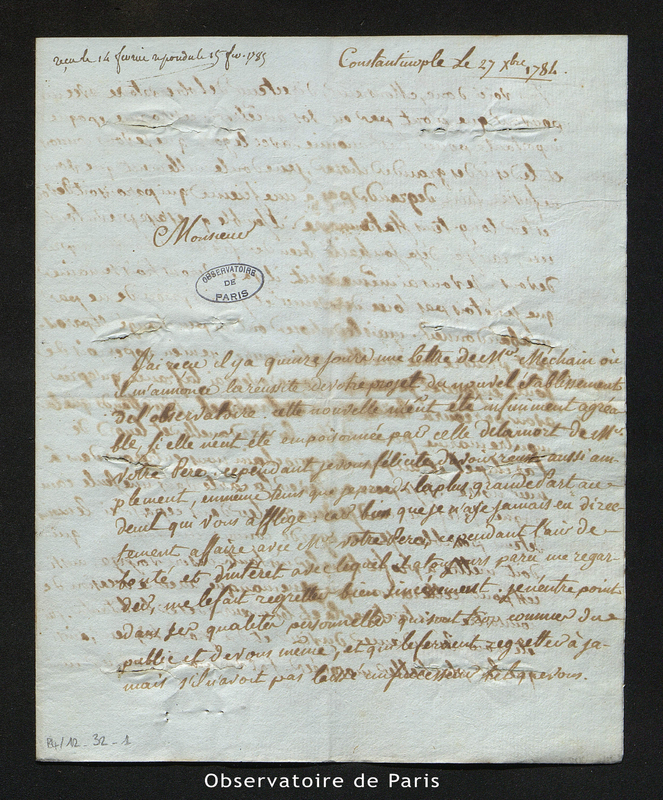 reçu le 14 fevrier repondu le 15 fev. 1785
Constantinople Le 27 Xbre 1784.
Monsieur
OBSERVATOIRE
DE
PARIS
J'ai reçu il y a quinze jours une lettre de Mr. Méchain où
il m'annonce la réussite de votre projet du nouvel établissement
de l'observatoire cette nouvelle m'eut été infiniment agréa
ble, si elle n'eut été empoisonnée par celle de la mort de Mr.
Votre Pere, cependant je vous félicite aussi am-
plement, en même tems que je prends la plus grande part au
deuil qui vous afflige: car bien que je n'aye jamais eu direc
tement affaire avec Mr. votre Pere, cependant l'air de
bonté et d'intérêt avec lequel il a toujours paru me regar-
der, me le fait regretter bien sincèrement, je n'entre point
dans ses qualités personnelles qui sont connues du
public et de vous même, et qui le feroient regretter à ja-
mais s'il n'avoit pas laissé un successeur tel que vous.
B4/12-32-1
Observatoire de Paris